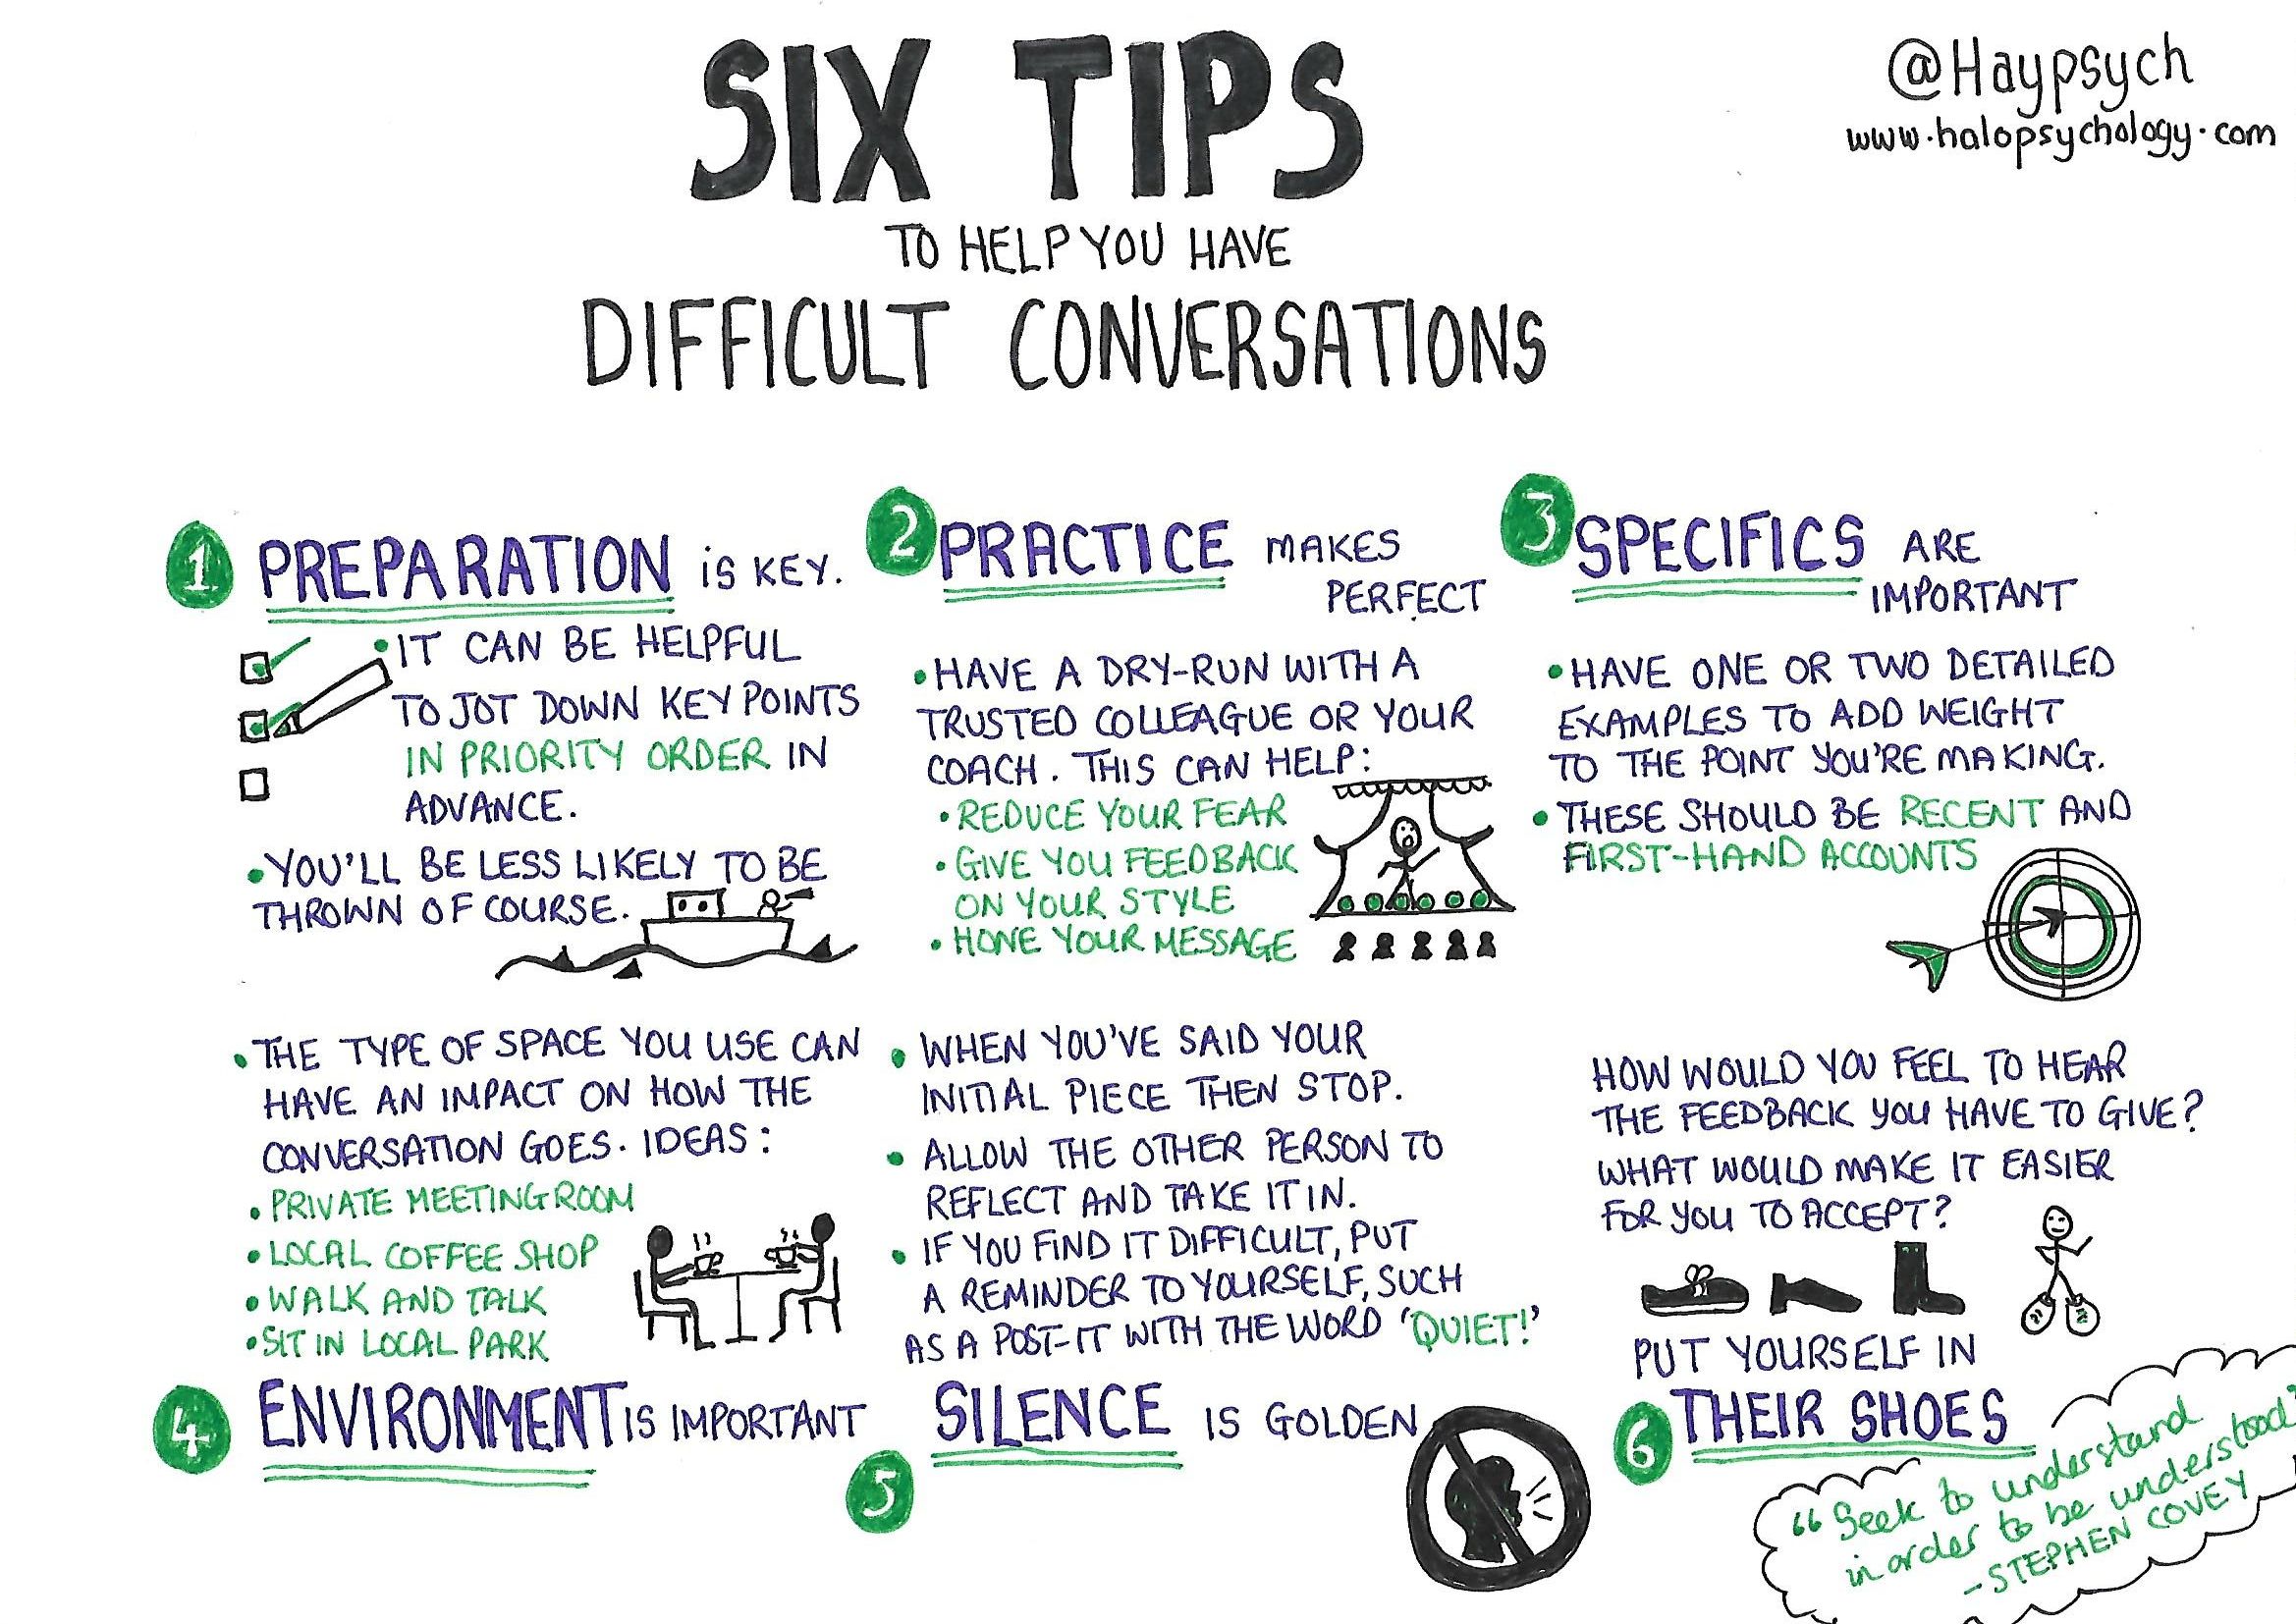 SIX TIPS
TO HELP YOU HAVE
DIFFICULT CONVERSATIONS
@Haypsych
www.halopsychology.com
1 PREPARATION IS KEY.
• IT CAN BE HELPFUL
TO JOT DOWN KEY POINTS
IN PRIORITY ORDER IN
ADVANCE.
• YOU'LL BE LESS LIKELY TO BE
THROWN OF COURSE.
2 PRACTICE MAKES
PERFECT
• HAVE A DRY-RUN WITH A
TRUSTED COLLEAGUE OR YOUR
COACH. THIS CAN HELP:
• REDUCE YOUR FEAR
• GIVE YOU FEEDBACK
ON YOUR STYLE
• HONE YOUR MESSAGE
3 SPECIFICS ARE
IMPORTANT
• HAVE ONE OR TWO DETAILED
EXAMPLES TO ADD WEIGHT
TO THE POINT YOU'RE MAKING.
• THESE SHOULD BE RECENT AND
FIRST-HAND ACCOUNTS
• THE TYPE OF SPACE YOU USE CAN
HAVE AN IMPACT ON HOW THE
CONVERSATION GOES. IDEAS:
• PRIVATE MEETING ROOM
• LOCAL COFFEE SHOP
• WALK AND TALK
• SIT IN LOCAL PARK
4 ENVIRONMENT IS IMPORTANT
• WHEN YOU'VE SAID YOUR
INITIAL PIECE THEN STOP.
• ALLOW THE OTHER PERSON TO
REFLECT AND TAKE IT IN.
• IF YOU FIND IT DIFFICULT, PUT
A REMINDER TO YOURSELF, SUCH
AS A POST-IT WITH THE WORD 'QUIET!'
5 SILENCE IS GOLDEN
HOW WOULD YOU FEEL TO HEAR
THE FEEDBACK YOU HAVE TO GIVE?
WHAT WOULD MAKE IT EASIER
FOR YOU TO ACCEPT?
PUT YOURSELF IN
6 THEIR SHOES
"Seek to understand
in order to be understood"
-STEPHEN COVEY